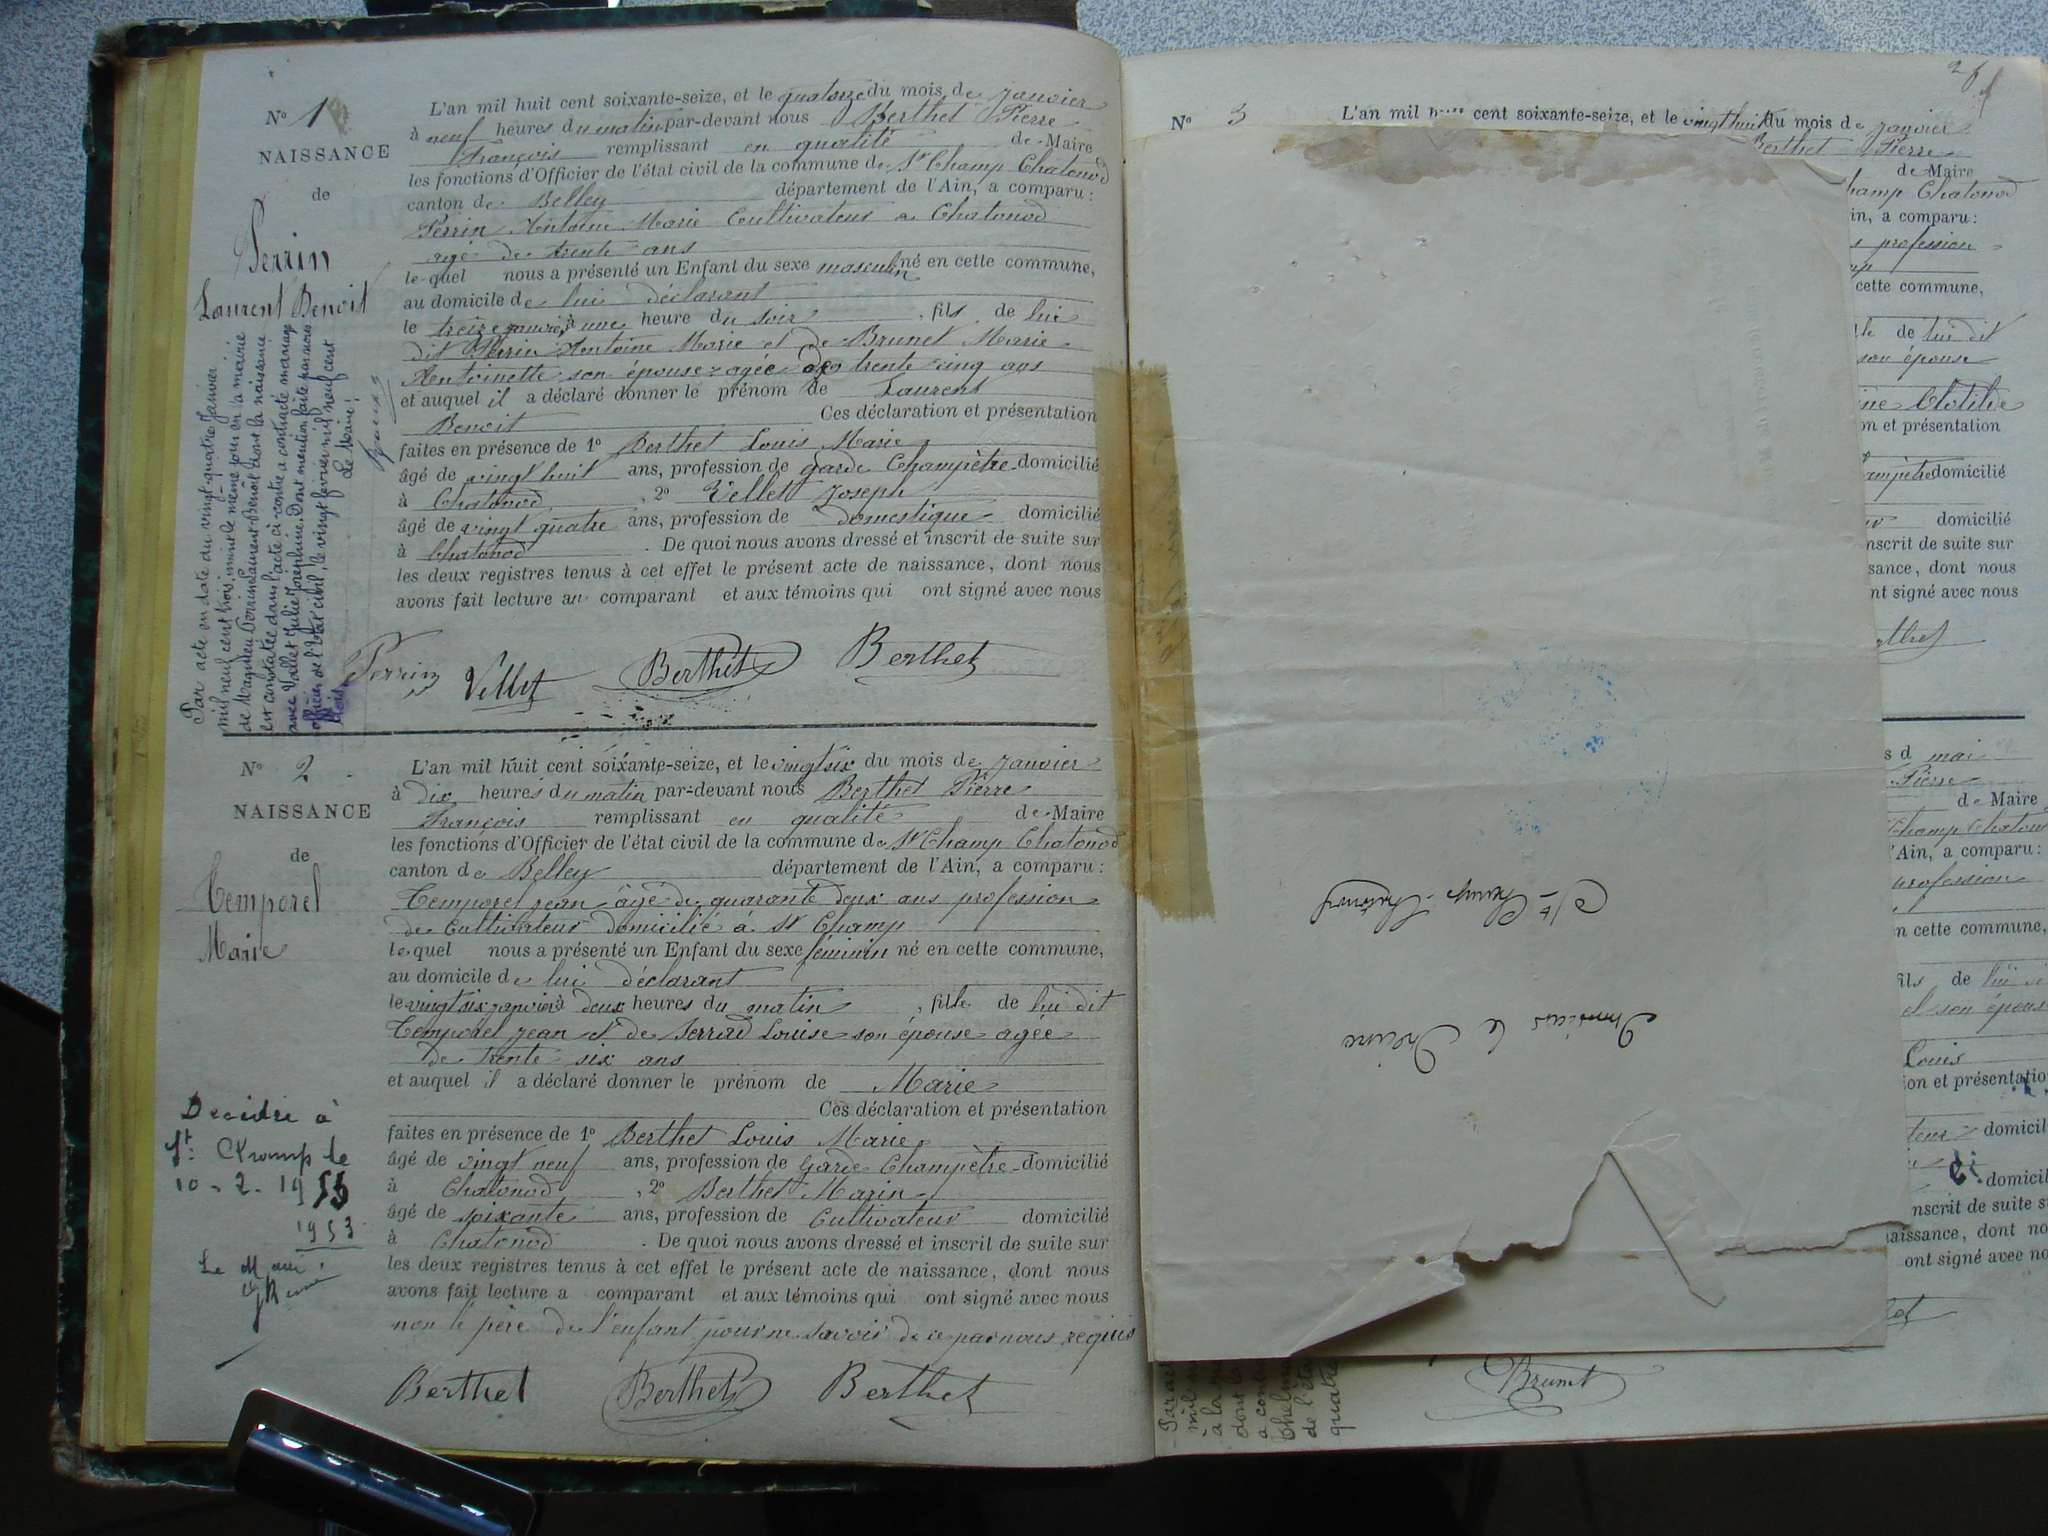 No 1
NAISSANCE
de
Perrin
Laurent Benoit
L'an mil huit cent soixante-seize, et le quatorze du mois de Janvier
à neuf heures du matin par-devant nous Berthet Pierre
François remplissant en qualité de Maire
les fonctions d'Officier de l'état civil de la commune de St Champ Chatonod
canton de Belley département de l'Ain, a comparu :
Perrin Antoine Marie Cultivateur a Chatonod
agé de trente ans
le quel nous a présenté un Enfant du sexe masculin né en cette commune,
au domicile de lui déclarant
le treize janvier à une heure du soir , fils de lui
dit Perrin Antoine Marie et de Brunet Marie
Antoinette son épouse agée de trente cinq ans
et auquel il a déclaré donner le prénom de Laurent
Benoit Ces déclaration et présentation
faites en présence de 1o Berthet Louis Marie
âgé de vingt huit ans, profession de garde Champêtre domicilié
à Chatonod , 2o Vellet Joseph
âgé de vingt quatre ans, profession de domestique domicilié
à Chatonod . De quoi nous avons dressé et inscrit de suite sur
les deux registres tenus à cet effet le présent acte de naissance, dont nous
avons fait lecture au comparant et aux témoins qui ont signé avec nous
Perrin Vellet Berthet Berthet
Par acte en date du vingt-quatre Janvier
mil neuf cent trois, inscrit le même jour en la mairie
de Magnieu Perrin Laurent Benoit dont la naissance
est constatée dans l'acte ci-contre a contracté mariage
avec Vallet Julie Joséphine. Dont mention faite par nous
officier de l'Etat civil, le vingt février mil neuf cent
trois
Le Maire :
No 2
NAISSANCE
de
Temporel
Marie
L'an mil huit cent soixante-seize, et le vingt six du mois de Janvier
à dix heures du matin par-devant nous Berthet Pierre
François remplissant en qualité de Maire
les fonctions d'Officier de l'état civil de la commune de St Champ Chatonod
canton de Belley département de l'Ain, a comparu :
Temporel Jean âgé de quarante deux ans profession
de Cultivateur domicilié à St Champ
le quel nous a présenté un Enfant du sexe féminin né en cette commune,
au domicile de lui déclarant
le vingt six janvier à deux heures du matin , fille de lui dit
Temporel Jean et de Serrad Louise son épouse agée
de trente six ans
et auquel il a déclaré donner le prénom de Marie
Ces déclaration et présentation
faites en présence de 1o Berthet Louis Marie
âgé de vingt neuf ans, profession de Garde Champêtre domicilié
à Chatonod , 2o Berthet Marin
âgé de soixante ans, profession de Cultivateur domicilié
à Chatonod . De quoi nous avons dressé et inscrit de suite sur
les deux registres tenus à cet effet le présent acte de naissance, dont nous
avons fait lecture a comparant et aux témoins qui ont signé avec nous
non le père de l'enfant pour ne savoir de ce par nous requis
Berthet Berthet Berthet
Décédée à
St Champ le
10-2-19 53
1953
Le Maire
No 3
L'an mil cent soixante-seize, et le vingt huit du mois de Janvier
Berthet Pierre
de Maire
hamp Chatonod
in, a comparu :
profession
cette commune,
de lui dit
son épouse
Clotilde
on et présentation
domicilié
domicilié
nscrit de suite sur
sance, dont nous
nt signé avec nous
Monsieur le Maire
St Champ-Chatonod
s d mai
Pierre
de Maire
Champ Chatonod
'Ain, a comparu :
profession
n cette commune,
ils de lui
el son épouse
Louis
ion et présentation
domicil
domicil
nscrit de suite s
aissance, dont no
ont signé avec no
Brunet
Par ac
mil
à la
dont l
a cont
Thel
de l'éta
quatre